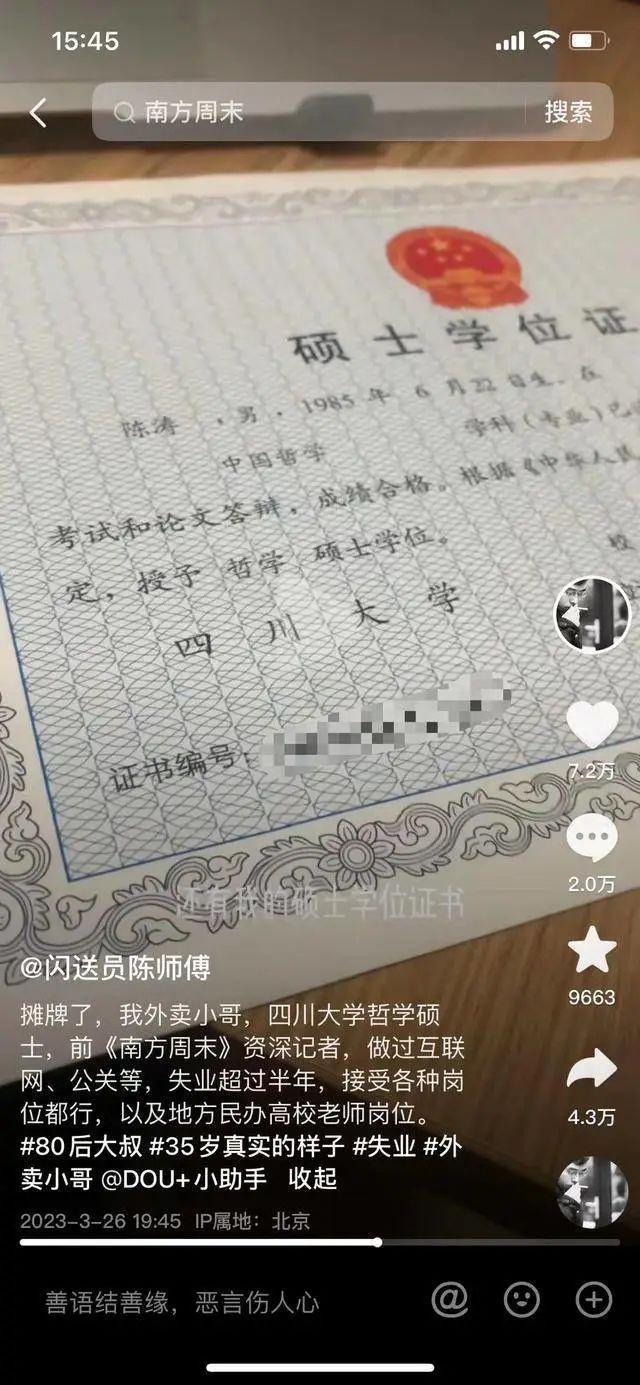 15:45
南方周末
搜索
硕士学位证
陈涛 ,男,1985年6月22日生。在
中国哲学 学科(专业)已
考试和论文答辩,成绩合格。根据《中华人民
定,授予 哲学 硕士学位。
校
四川大学
证书编号:
7.2万
2.0万
还有我的硕士学位证书
9663
@闪送员陈师傅
摊牌了,我外卖小哥,四川大学哲学硕
士,前《南方周末》资深记者,做过互联
网、公关等,失业超过半年,接受各种岗
位都行,以及地方民办高校老师岗位。
4.3万
#80后大叔 #35岁真实的样子 #失业 #外
卖小哥 @DOU+小助手 收起
2023-3-26 19:45 IP属地:北京
善语结善缘,恶言伤人心